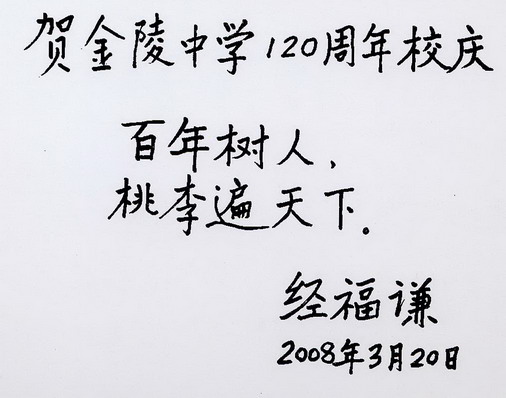 贺金陵中学120周年校庆
百年树人,
桃李遍天下.
经福谦
2008年3月20日